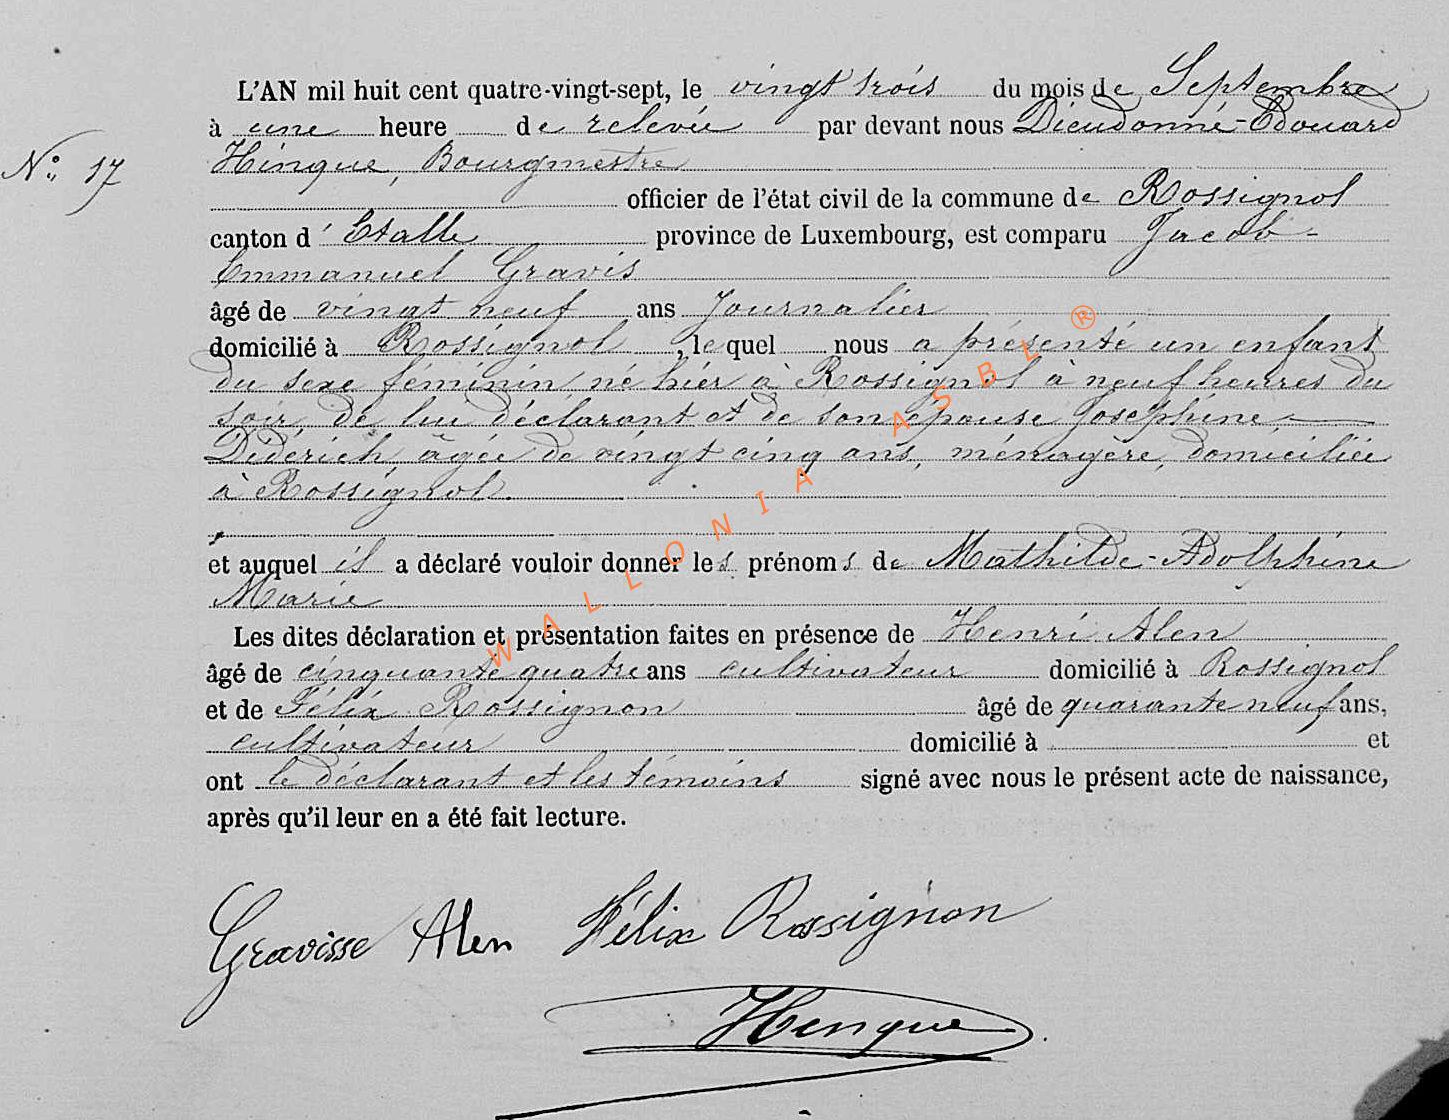 L'AN mil huit cent quatre-vingt-sept, le vingt trois du mois de Septembre
à une heure de relevée par devant nous Dieudonné-Edouard
N° 17
Hinque, Bourgmestre
officier de l'état civil de la commune de Rossignol
canton d'Etalle province de Luxembourg, est comparu Jacob-
Emmanuel Gravis
âgé de vingt neuf ans Journalier
domicilié à Rossignol, lequel nous a présenté un enfant
du sexe féminin né hier à Rossignol à neuf heures du
soir, de lui déclarant et de son épouse Joséphine
Didérich, âgée de vingt cinq ans, ménagère, domiciliée
à Rossignol.
et auquel il a déclaré vouloir donner les prénoms de Mathilde-Adolphine
Marie
Les dites déclaration et présentation faites en présence de Henri Alen
âgé de cinquante quatre ans cultivateur domicilié à Rossignol
et de Félix Rossignon âgé de quarante neuf ans,
cultivateur domicilié à et
ont le déclarant et les témoins signé avec nous le présent acte de naissance,
après qu'il leur en a été fait lecture.
Gravisse Alen Félix Rossignon
Henque
WALLONIA ASBL ®